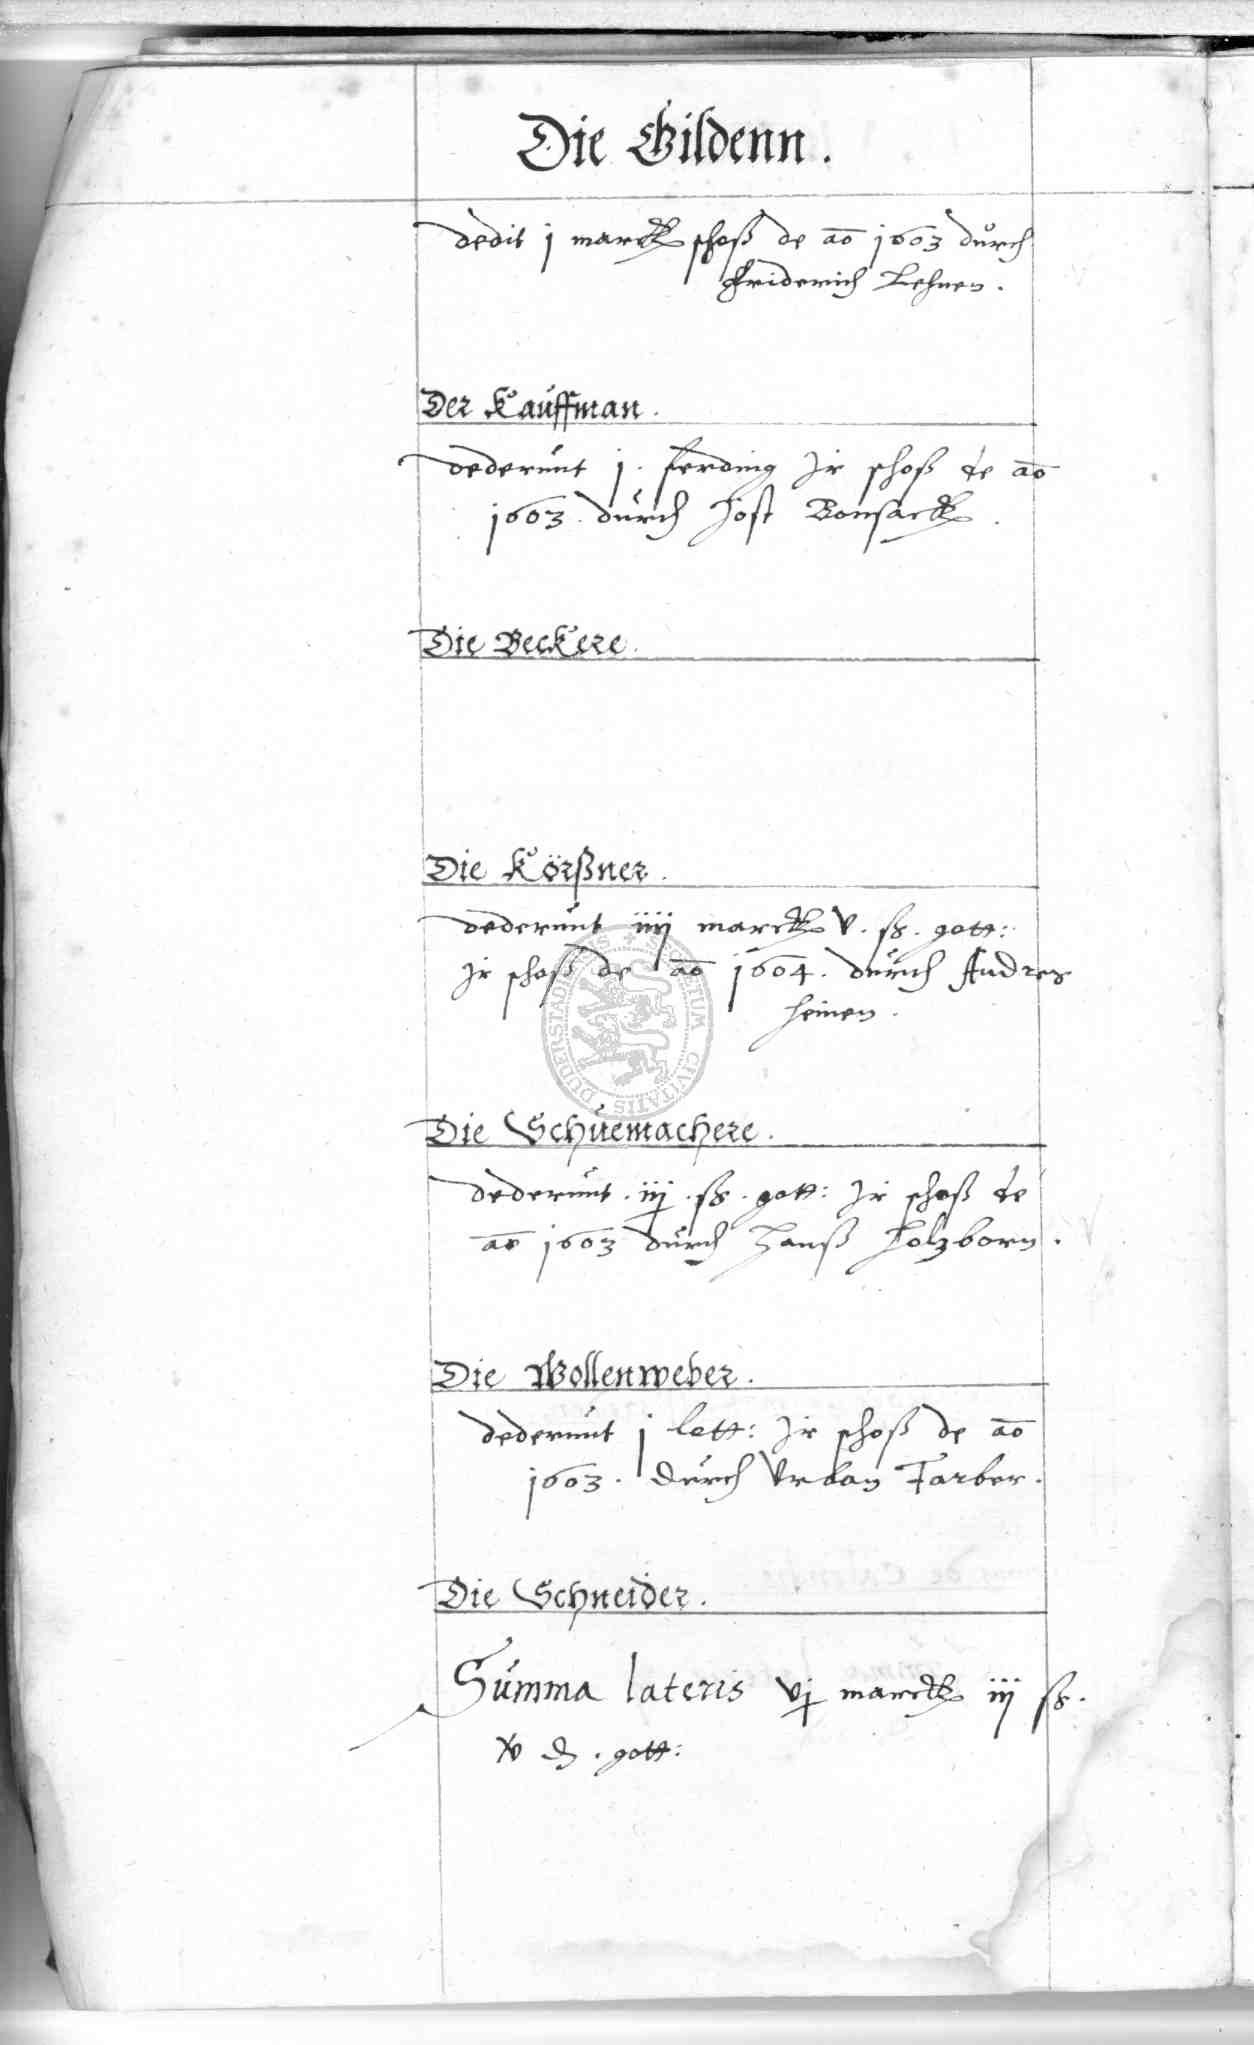 Die Gildenn.
dedit j marck schoß de ao 1603 durch
Friderich Lehnen.
Der Kauffman.
dederunt j. ferding Jr schoß de ao
1603. durch Jost Bonsack.
Die Beckere.
Die Körßner.
dederunt iiij marck v. ß. gott:
Jr schoß de ao 1604. durch Andres
heinen.
Die Schuemachere.
dederunt. iij. ß. gott: Jr schoß de
ao 1603 durch Hanß Holzborn.
Die Wollenweber.
dederunt j lott: Jr schoß de ao
1603. durch Urban Farber.
Die Schneider.
Summa lateris vj marck iij ß.
gott:
SECRETUM CIVITATIS DUDERSTADENSIS